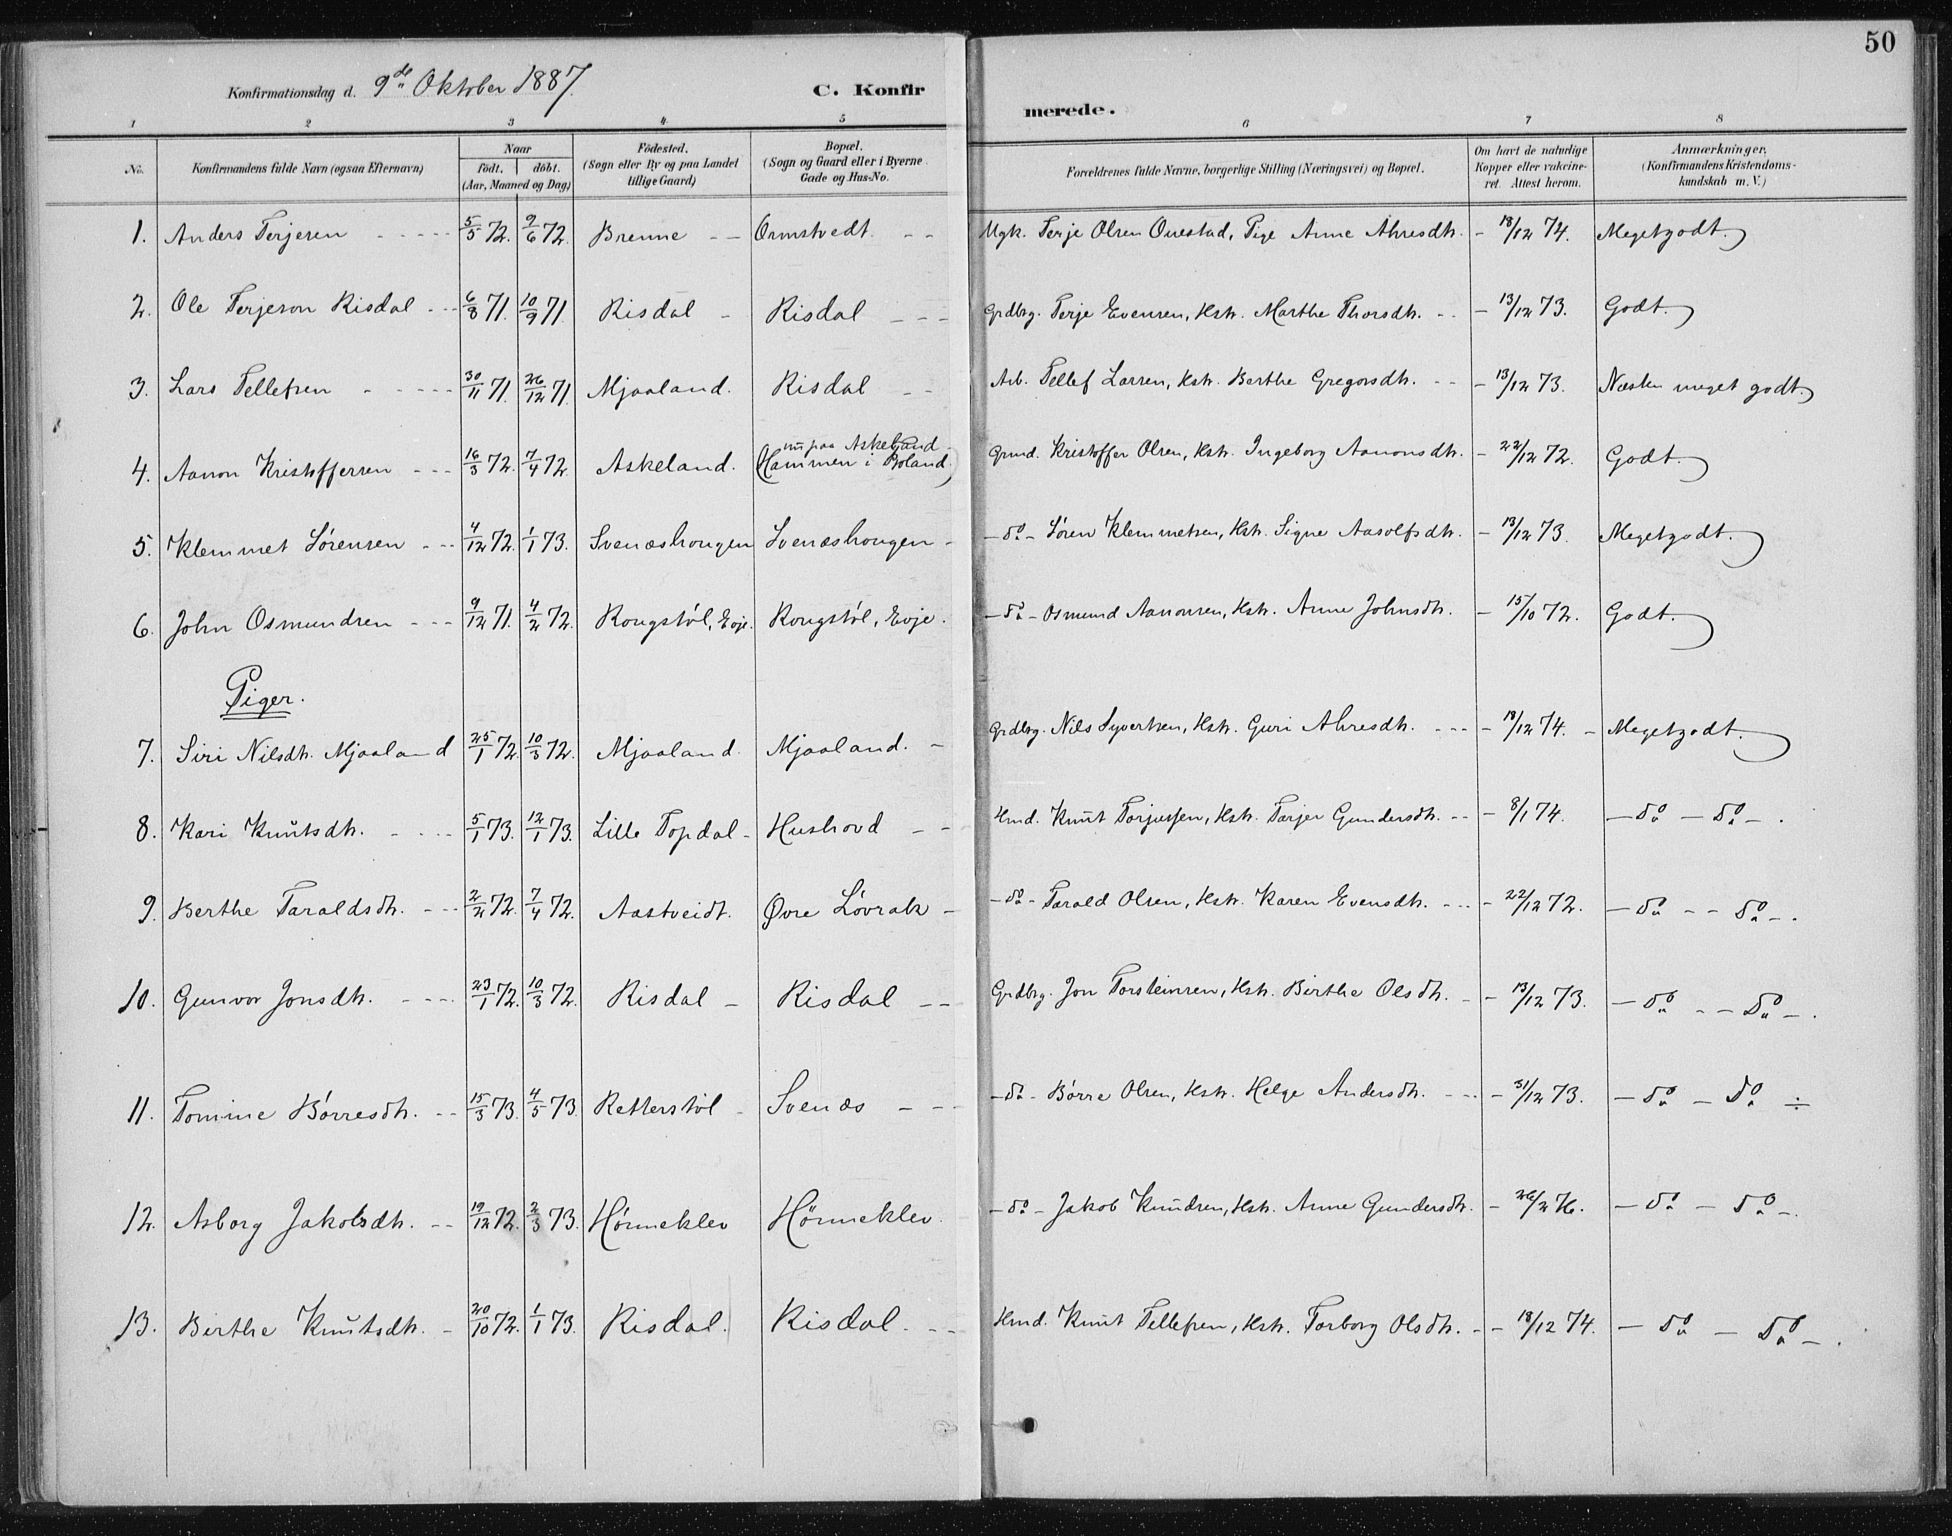 50
Konfirmationsdag d. 9de Oktober 1887. C. Konfirmerede.
1 2 3 4 5 6 7 8
No. | Konfirmandens fulde Navn (ogsaa Efternavn) | Naar födt. döbt. (Aar, Maaned og Dag) | Födested. (Sogn eller By og paa Landet tillige Gaard) | Bopæl. (Sogn og Gaard eller i Byerne Gade og Hus-No. | Forældrenes fulde Navne, borgerlige Stilling (Næringsvei) og Bopæl. | Om havt de naturlige Kopper eller vakcineret. Attest herom. | Anmærkninger. (Konfirmandens Kristendomskundskab m. V.)
1. Anders Terjesen - 5/5 72. 9/6 72. Brenne - Ormstvedt. - Ugk. Terje Olsen Ouestad, Pige Anne Ahresdtr. - 18/12 74. Megetgodt.
2. Ole Terjeson Risdal - 6/8 71. 10/9 71. Risdal - Risdal - Grdbrg. Terje Evensen, Kstr. Marthe Thorsdtr. - 13/12 73. Godt.
3. Lars Tellefsen - 30/11 71. 26/12 71. Mjaaland. Risdal - Arb. Tellef Larsen, Kstr. Berthe Gregorsdtr. - 13/12 73. Næsten meget godt.
4. Aanon Kristoffersen - 16/3 72. 7/4 72. Askeland. nu paa Askeland (Hammen i Boland.) Grmd. Kristoffer Olsen, Kstr. Ingeborg Aanonsdtr. - 22/12 72. Godt.
5. Klemmet Sörensen - 4/12 72. 1/1 73. Svenæshougen Svenæshougen - -do- Sören Klemmetsen, Kstr. Signe Aasolfsdtr. - 13/12 73. Megetgodt.
6. John Osmundsen - 9/12 71. 4/2 72. Rougstöl, Evje. Rougstöl, Evje. -do- Osmund Aanonsen, Kstr. Anne Johnsdtr. - 15/10 72. Godt.
Piger.
7. Siri Nilsdtr. Mjaaland 25/1 72. 10/3 72. Mjaaland. Mjaaland. - Grdbrg. Nils Syvertsen, Kstr. Guri Ahresdtr. - 18/12 74. - Megetgodt.
8. Kari Knutsdtr. - 5/1 73. 12/1 73. Lille Topdal - Hushovd - Hmd. Knut Torjussen, Kstr. Torjer Gundersdtr. - 8/1 74. - do - do - .
9. Berthe Taraldsdtr. - 2/2 72. 7/4 72. Aastveidt. Øvre Lövrak - -do- Tarald Olsen, Kstr. Karen Evensdtr. - 22/12 72. - do - - do - .
10. Gunvor Jonsdtr. - 23/1 72. 10/3 72. Risdal - Risdal - Grdbrg. Jon Torsteinsen, Kstr. Birthe Olsdtr. - 13/12 73. - do - - do - .
11. Tomine Börresdtr. - 15/3 73. 4/5 73. Retterstöl - Svenæs - -do- Börre Olsen, Kstr. Helge Andersdtr. - 31/12 73. - do - do ÷
12. Asborg Jakobsdtr. - 19/12 72. 2/3 73. Hönneklev Hönneklev. -do- Jakob Knudsen, Kstr. Anne Gundersdtr. - 26/2 76. - do - do - .
13. Birthe Knutsdtr. - 20/10 72. 1/1 73. Risdal. Risdal. - Hmd. Knut Tellefsen, Kstr. Torborg Olsdtr. - 18/12 74. - do - do - .